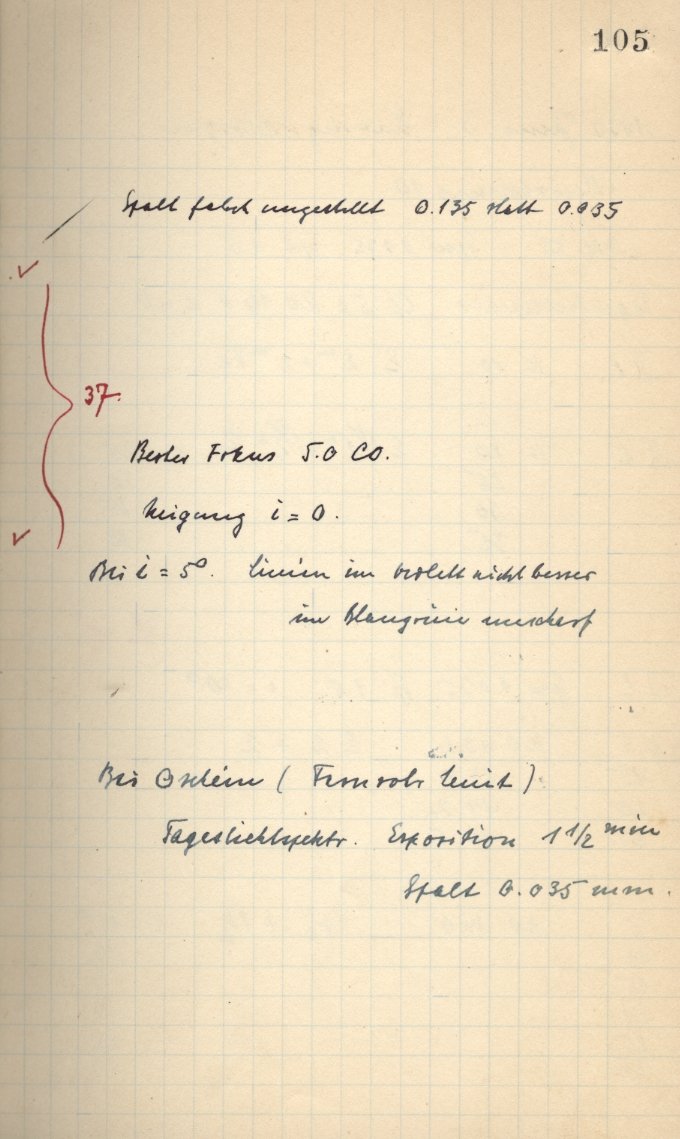 105
Spalt falsch eingestellt 0.135 statt 0.035
37.
Bester Fokus 5.0 CO.
Neigung i = 0.
Bei i = 5°. Linien im violett nicht besser
im Blaugrün unscharf
Bei ⊙schein (Fernrohr Zenit)
Tageslichtspektr. Exposition 1 1/2 min
Spalt 0.035 mm.